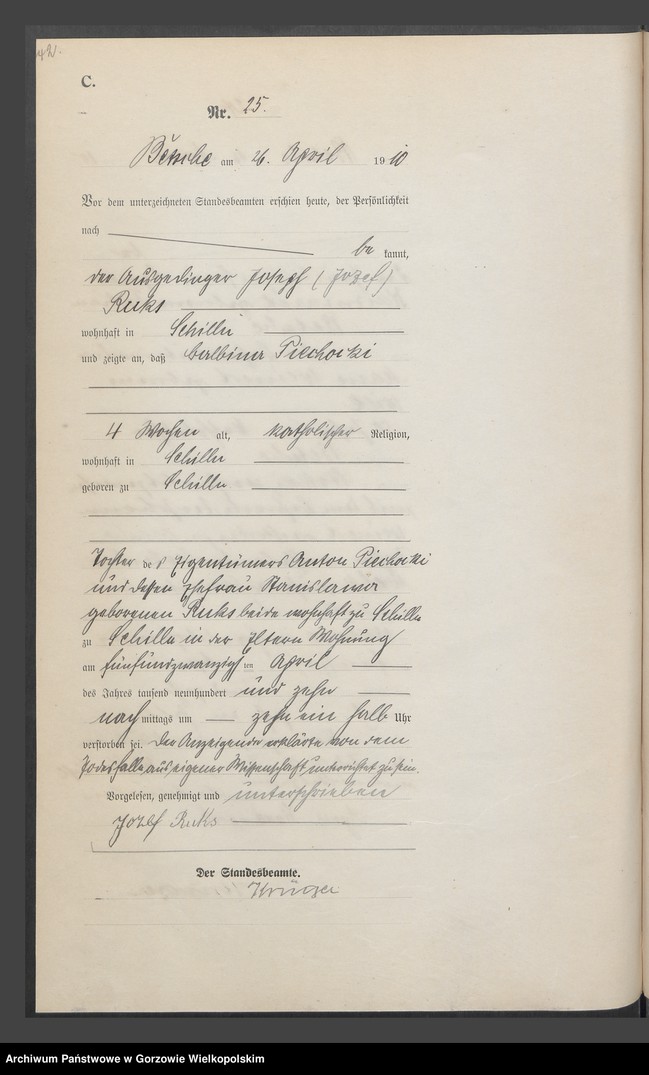 42.
C.
Nr. 25.
Betsche am 26. April 1910
Vor dem unterzeichneten Standesbeamten erschien heute, der Persönlichkeit
nach
be kannt,
der Ausgedinger Joseph (Jozef)
Ruks
wohnhaft in Schilln
und zeigte an, daß Balbina Piechocki
4 Wochen alt, katholischer Religion,
wohnhaft in Schilln
geboren zu Schilln
Tochter des Eigentümers Anton Piechocki
und dessen Ehefrau Stanislawa
geborenen Ruks beide wohnhaft zu Schilln
zu Schilln in der Eltern Wohnung
am fünfundzwanzigsten April
des Jahres tausend neunhundert und zehn
nach mittags um zehn ein halb Uhr
verstorben sei. Der Anzeigende erklärte von dem
Todesfalle aus eigener Wissenschaft unterrichtet zu sein.
Vorgelesen, genehmigt und unterschrieben
Jozef Ruks
Der Standesbeamte.
Krüger
Archiwum Państwowe w Gorzowie Wielkopolskim